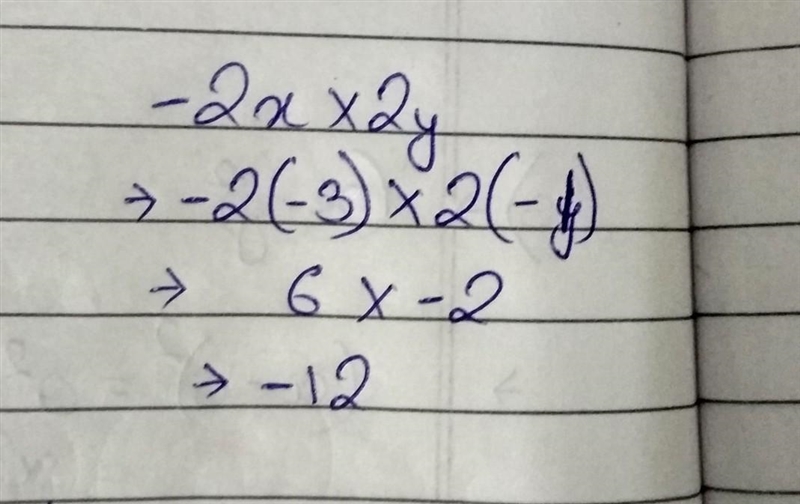 -2x × 2y
→ -2(-3) × 2(-1)
→ 6 × -2
→ -12